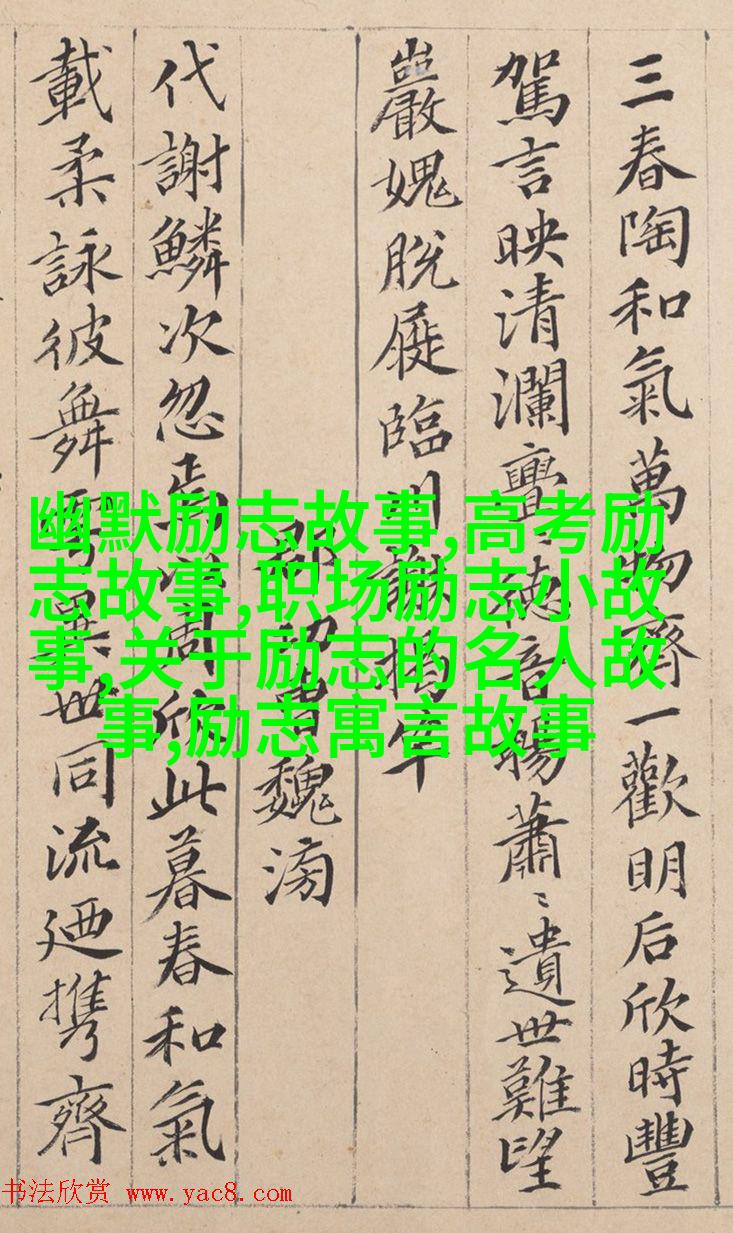 三春陶和氣萬物齊一歡明后欣時豐
駕言映清瀾亹〻德音暢蕭〻遺世難望
巖愧脫屣臨川謝揭竿
郡功曹魏滂
代謝鱗次忽焉以周欣此暮春和氣
載柔詠彼舞雩異世同流迺携齊
幽默励志故事,高考励
志故事,职场励志小故
事,关于励志的名人故
事,励志寓言故事
书法欣赏 www.yac8.com